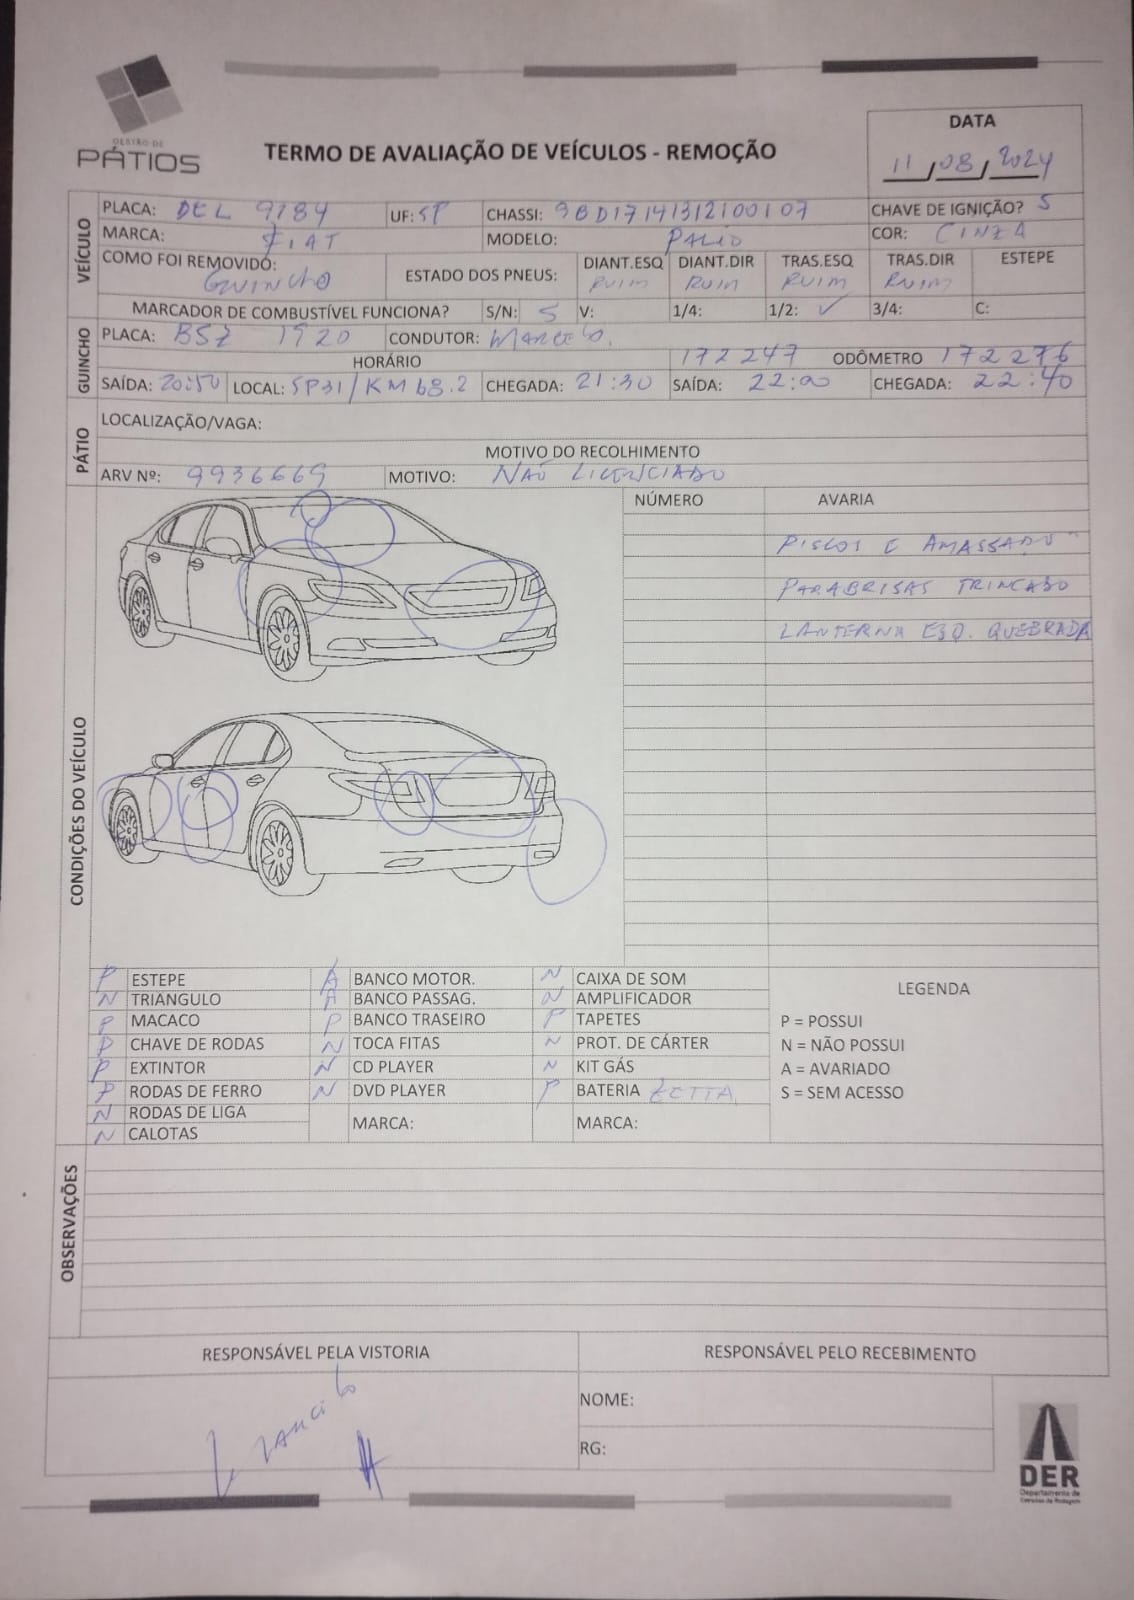 GESTÃO DE
PÁTIOS
TERMO DE AVALIAÇÃO DE VEÍCULOS - REMOÇÃO
DATA
11/08/2024
VEÍCULO
PLACA: DEL 9784 UF: SP CHASSI: 9BD17141312100107 CHAVE DE IGNIÇÃO? S
MARCA: FIAT MODELO: PALIO COR: CINZA
COMO FOI REMOVIDO: GUINCHO ESTADO DOS PNEUS: DIANT.ESQ RUIM DIANT.DIR RUIM TRAS.ESQ RUIM TRAS.DIR RUIM ESTEPE
MARCADOR DE COMBUSTÍVEL FUNCIONA? S/N: S V: 1/4: 1/2: ✓ 3/4: C:
GUINCHO
PLACA: BSZ 1920 CONDUTOR: MARCELO.
HORÁRIO 172247 ODÔMETRO 172276
SAÍDA: 20:50 LOCAL: SP31/KM 68.2 CHEGADA: 21:30 SAÍDA: 22:00 CHEGADA: 22:40
PÁTIO
LOCALIZAÇÃO/VAGA:
MOTIVO DO RECOLHIMENTO
ARV Nº: 9936669 MOTIVO: NÃO LICENCIADO
CONDIÇÕES DO VEÍCULO
NÚMERO AVARIA
RISCOS E AMASSADO
PARABRISAS TRINCADO
LANTERNA ESQ. QUEBRADA
P ESTEPE A BANCO MOTOR. N CAIXA DE SOM
N TRIANGULO A BANCO PASSAG. N AMPLIFICADOR
P MACACO P BANCO TRASEIRO P TAPETES
P CHAVE DE RODAS N TOCA FITAS N PROT. DE CÁRTER
P EXTINTOR N CD PLAYER N KIT GÁS
P RODAS DE FERRO N DVD PLAYER P BATERIA ZETTA
N RODAS DE LIGA MARCA: MARCA:
N CALOTAS
LEGENDA
P = POSSUI
N = NÃO POSSUI
A = AVARIADO
S = SEM ACESSO
OBSERVAÇÕES
RESPONSÁVEL PELA VISTORIA RESPONSÁVEL PELO RECEBIMENTO
NOME:
RG:
DER
Departamento de
Estradas de Rodagem